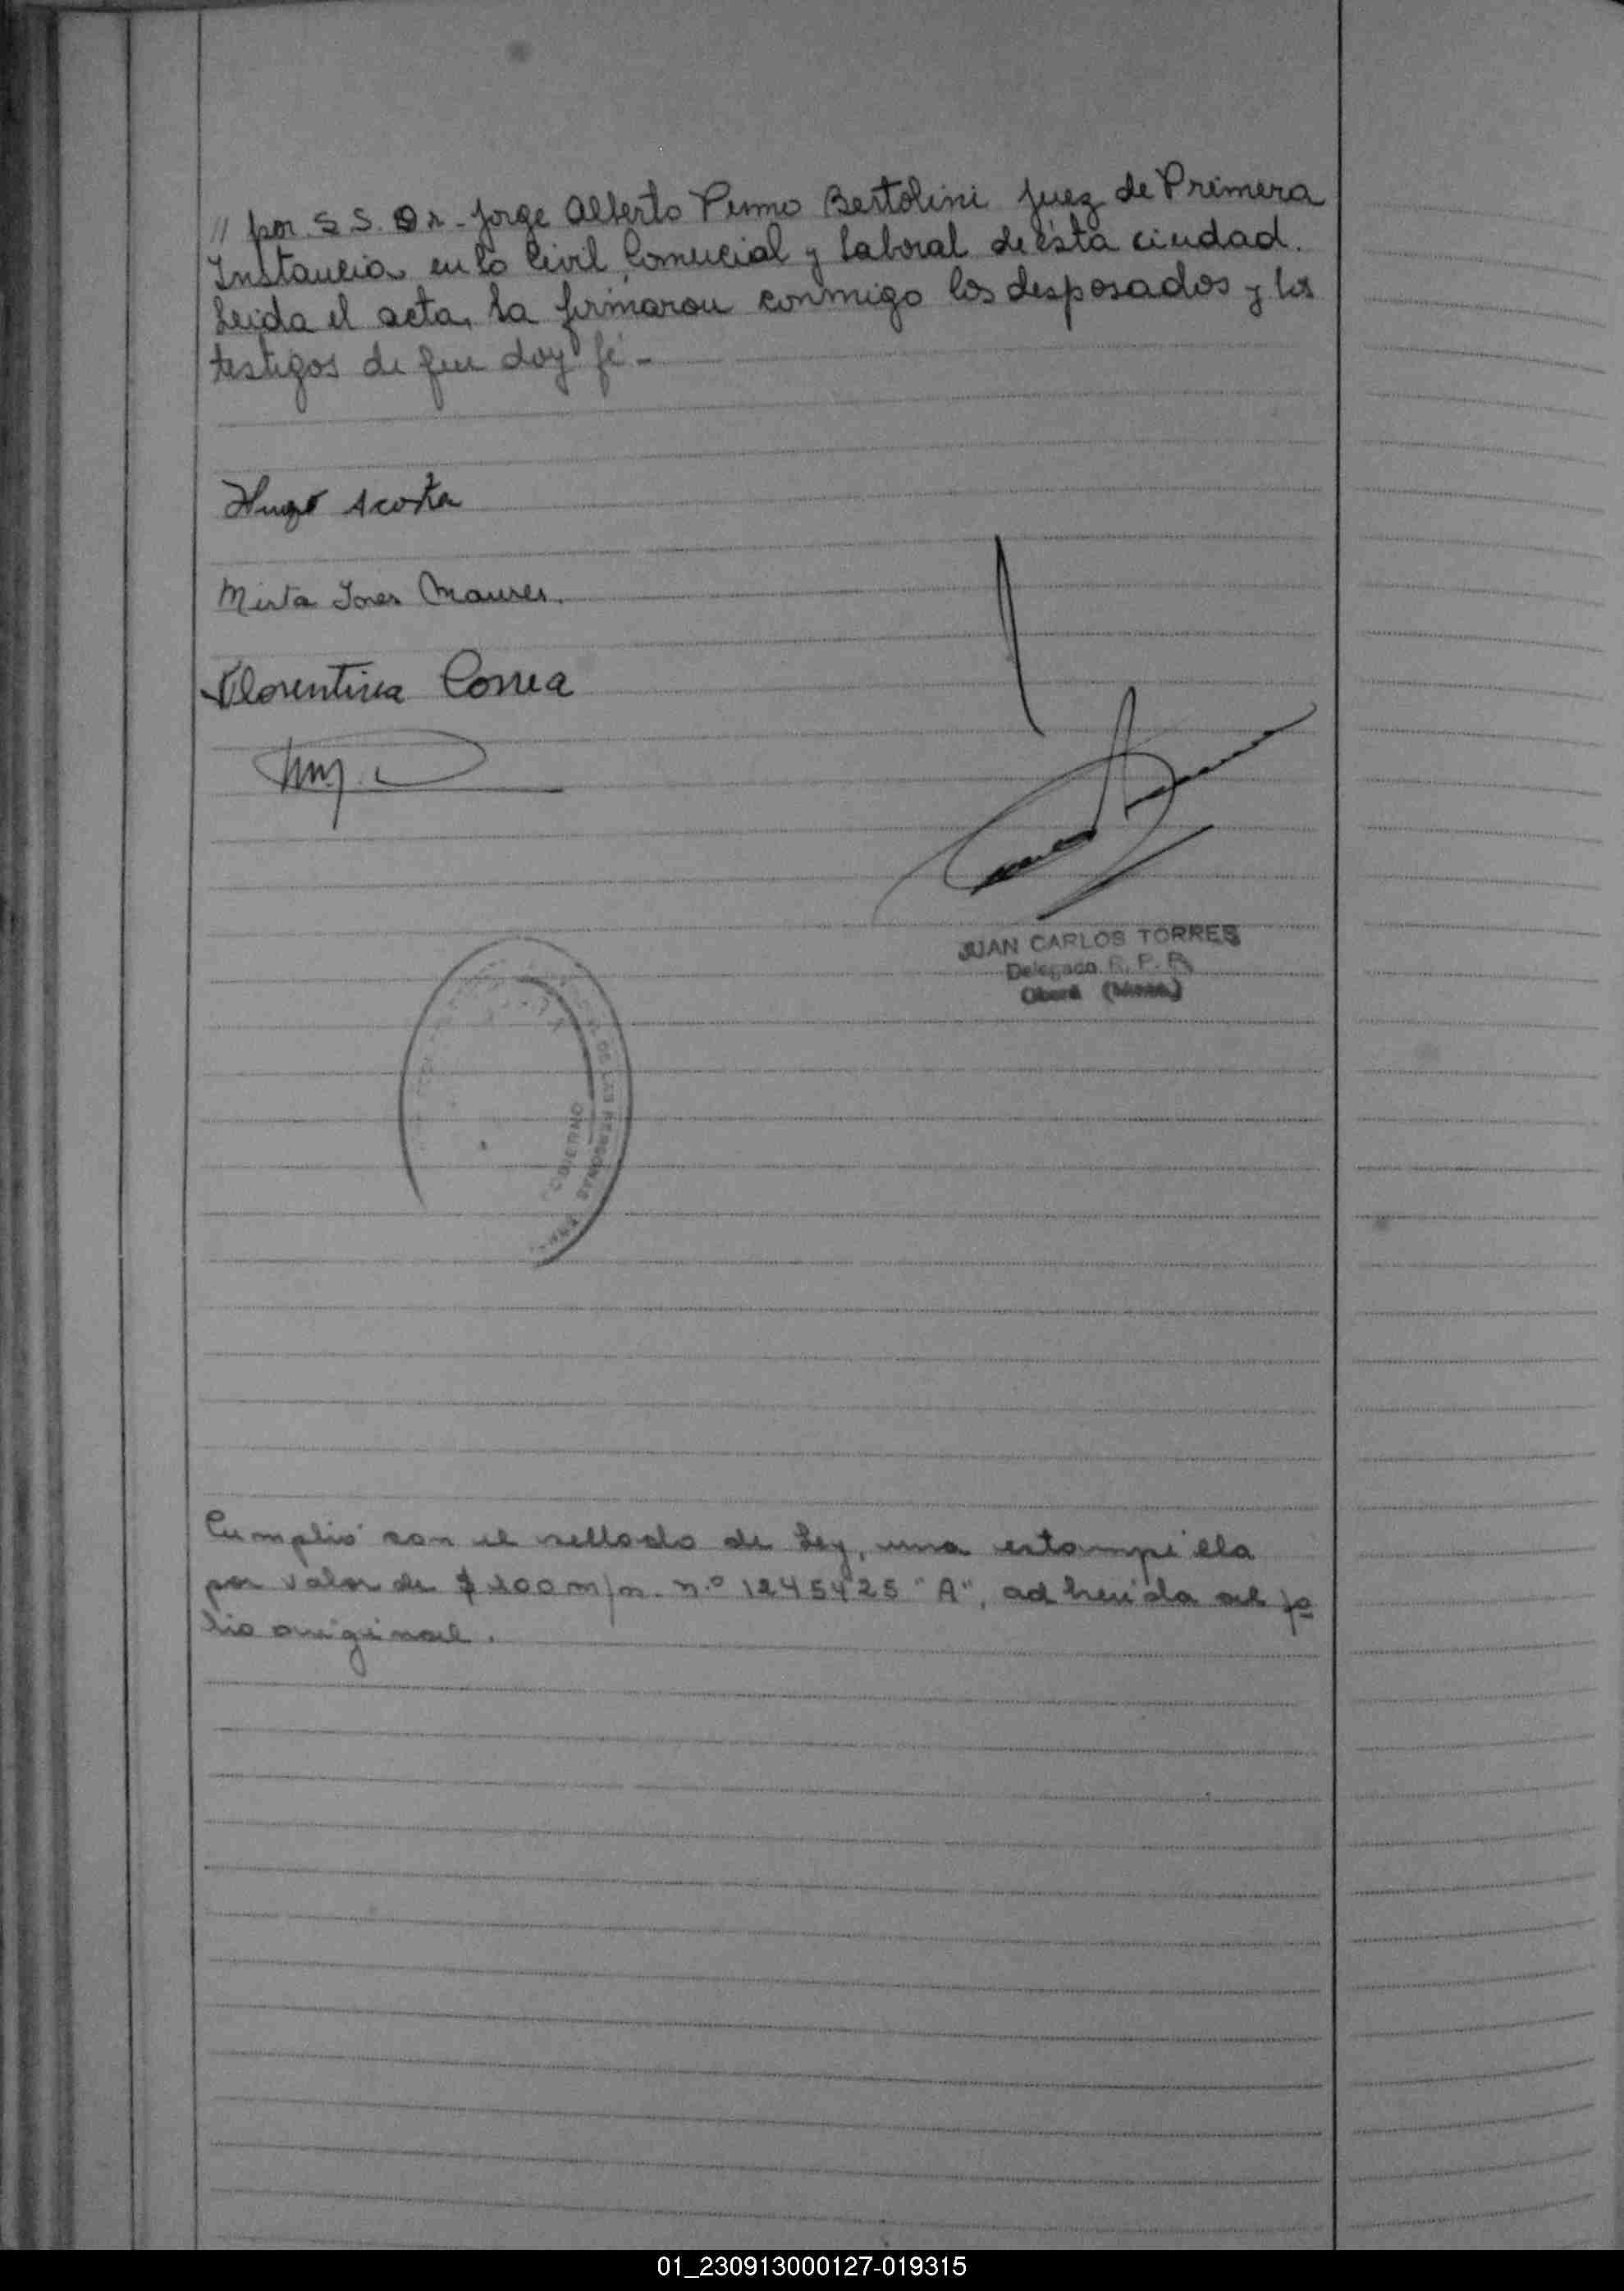 // por S S. Dr. Jorge Alberto Primo Bertolini Juez de Primera
Instancia en lo Civil, Comercial y Laboral de ésta ciudad.
Leida el acta, la firmaron conmigo los desposados y los
testigos de que doy fé -
Hugo Acosta
Mirta Ines Maurer.
Florentina Correa
JUAN CARLOS TORRES
Delegado R. P. P.
Oberá (Mnes.)
DE LAS PERSONAS
GOBIERNO
Cumplió con el sellado de Ley, una estampilla
por valor de $ 200 m/n. n.º 1245425 "A", adherida al fo
lio original.
01_230913000127-019315